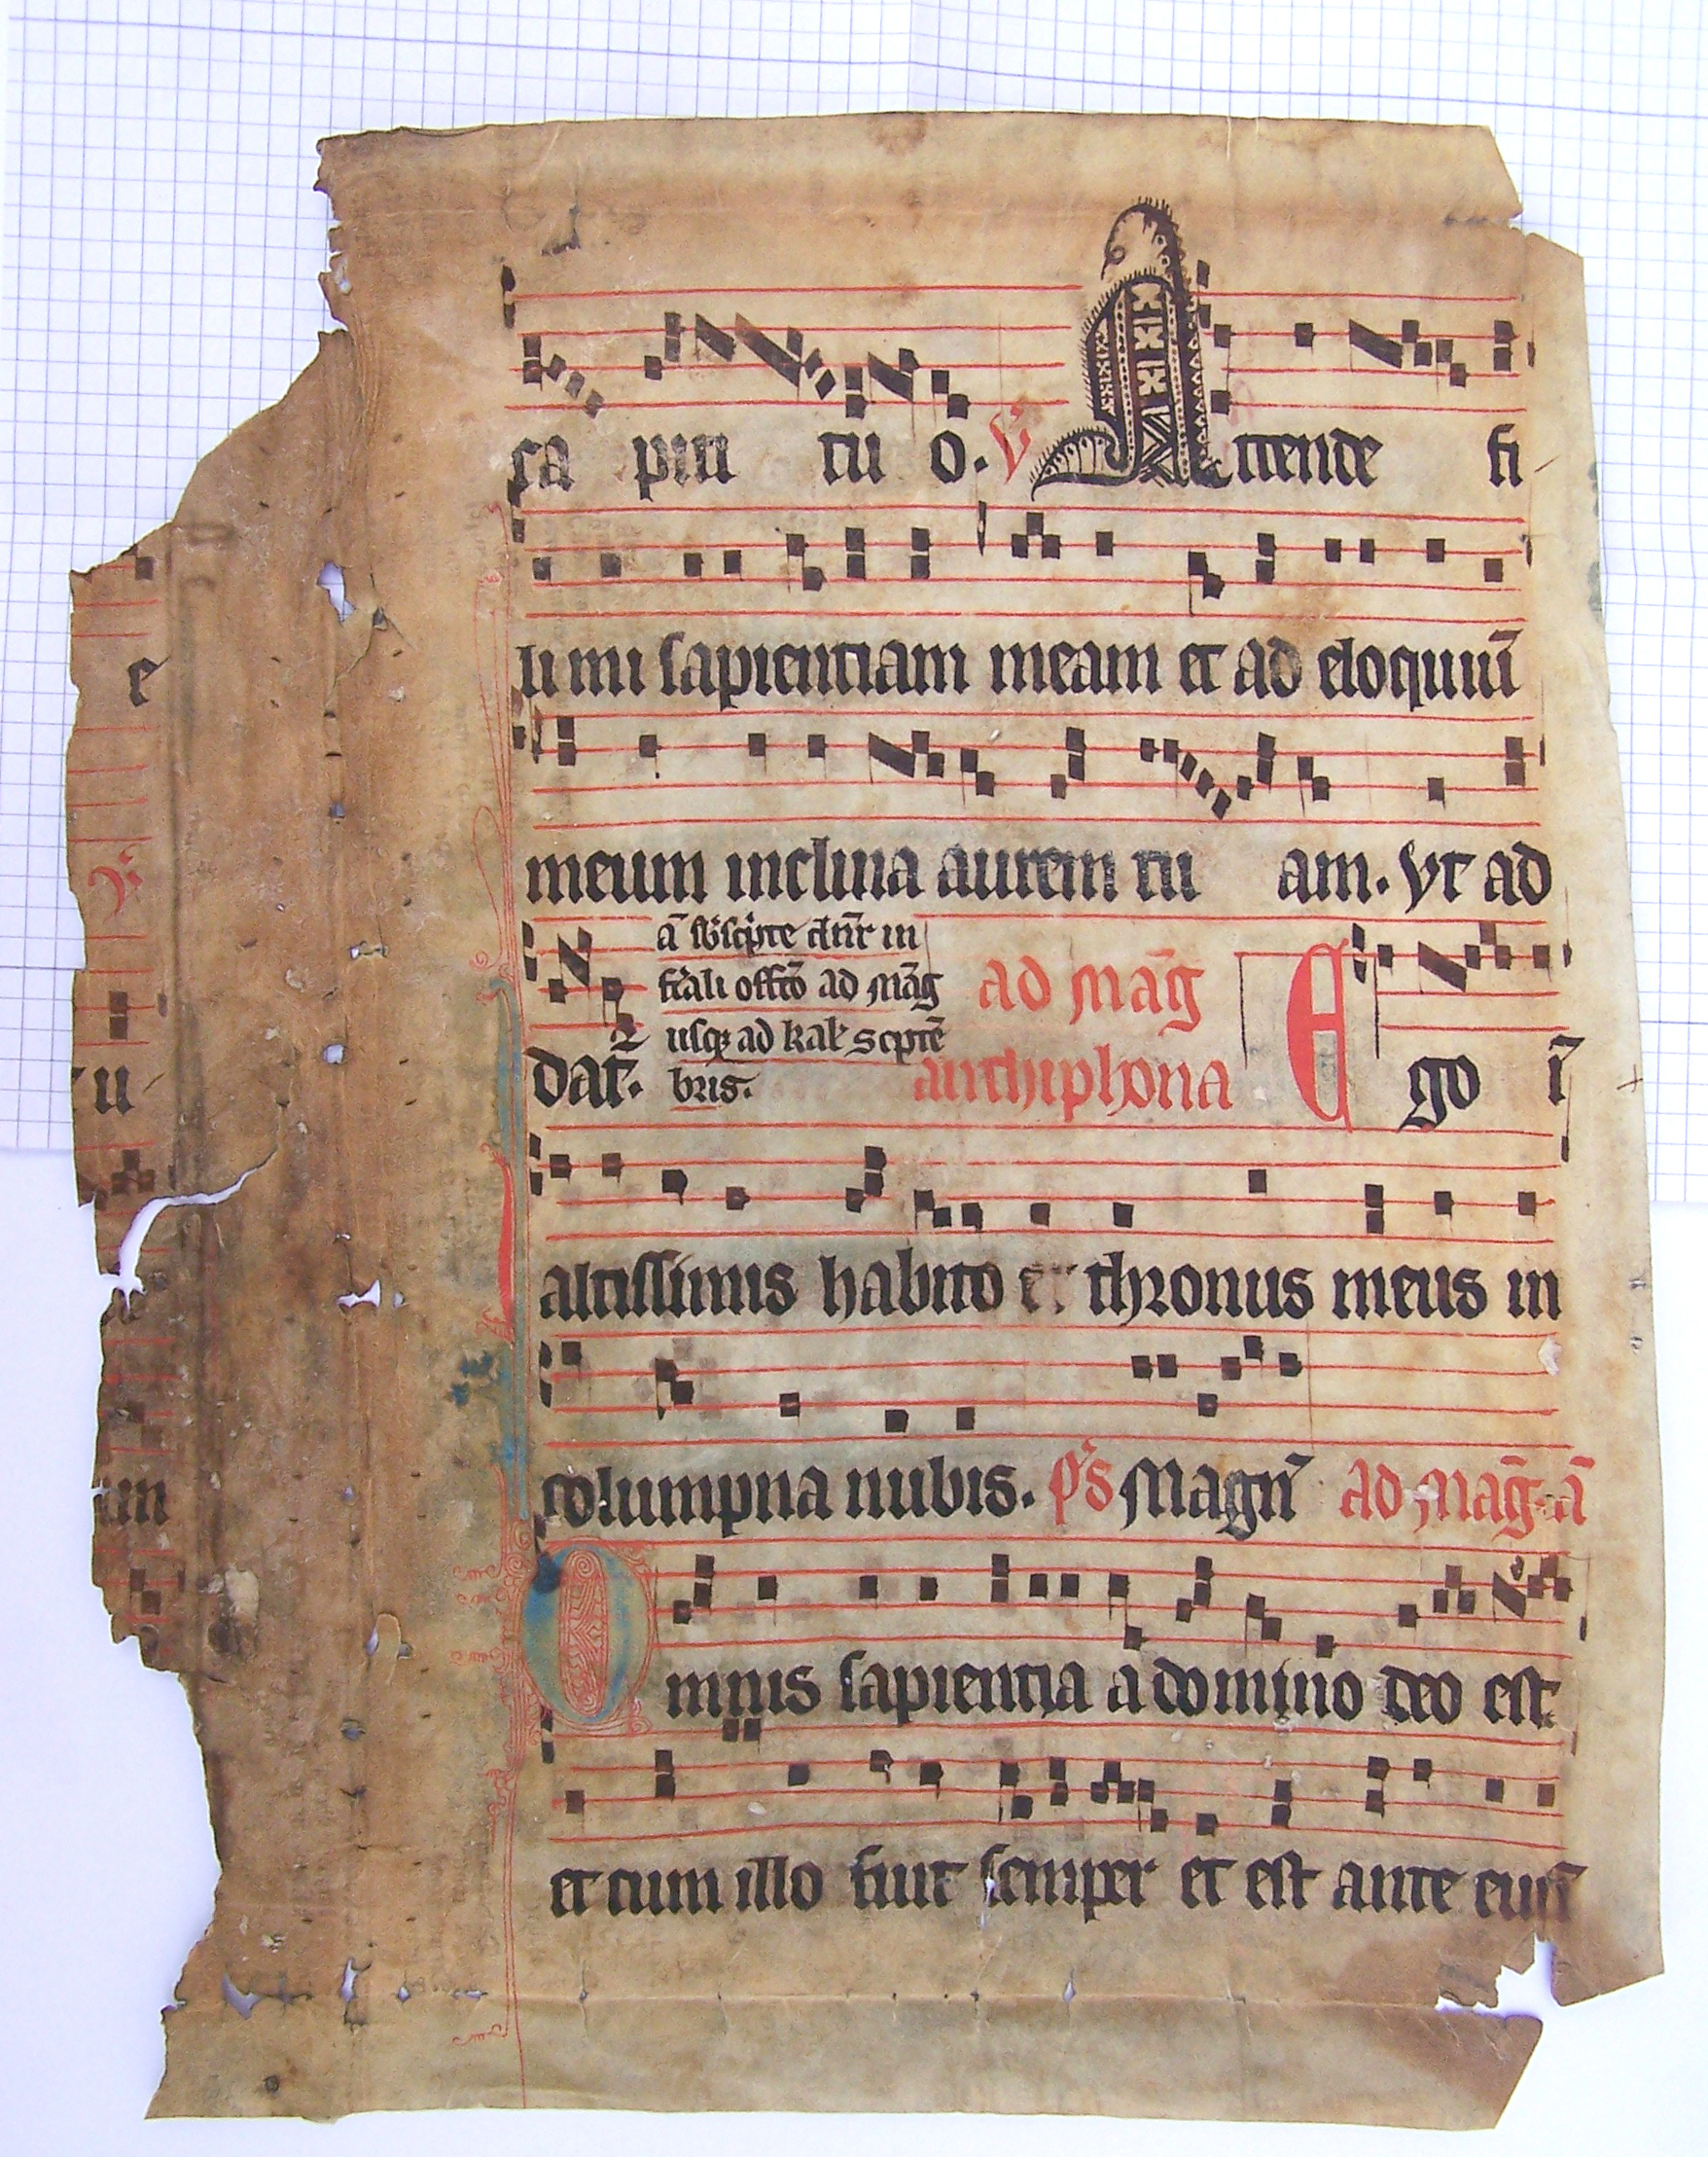 ca piti tu o. V Attende fi
li mi sapientiam meam et ad eloquiū
meum inclina aurem tu am. Vt ad
ā sb̄scp̄te dn̄r in
fr̄ali offō ad māg
usq; ad kal̄ septē
bris.
dat̄. ad māg
anthiphona Ego ī
altissimis habito et thronus meus in
columpna nubis. p̄s Magn̄ ad māg ā
Omnis sapientia a domino deo est
et cum illo fuit semper et est ante euū
e
V
tu
um